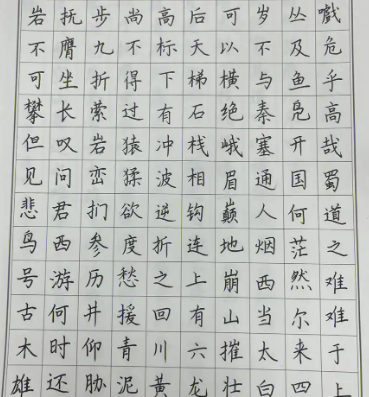 嚱危乎高哉蜀道之难难于上
丛及鱼凫开国何茫然尔来四
岁不与秦塞通人烟西当太白
可以横绝峨眉巅地崩山摧壮
后天梯石栈相钩连上有六龙
高标下有冲波逆折之回川黄
尚不得过猿猱欲度愁援青泥
步九折萦岩峦扪参历井仰胁
抚膺坐长叹问君西游何时还
岩不可攀但见悲鸟号古木雄